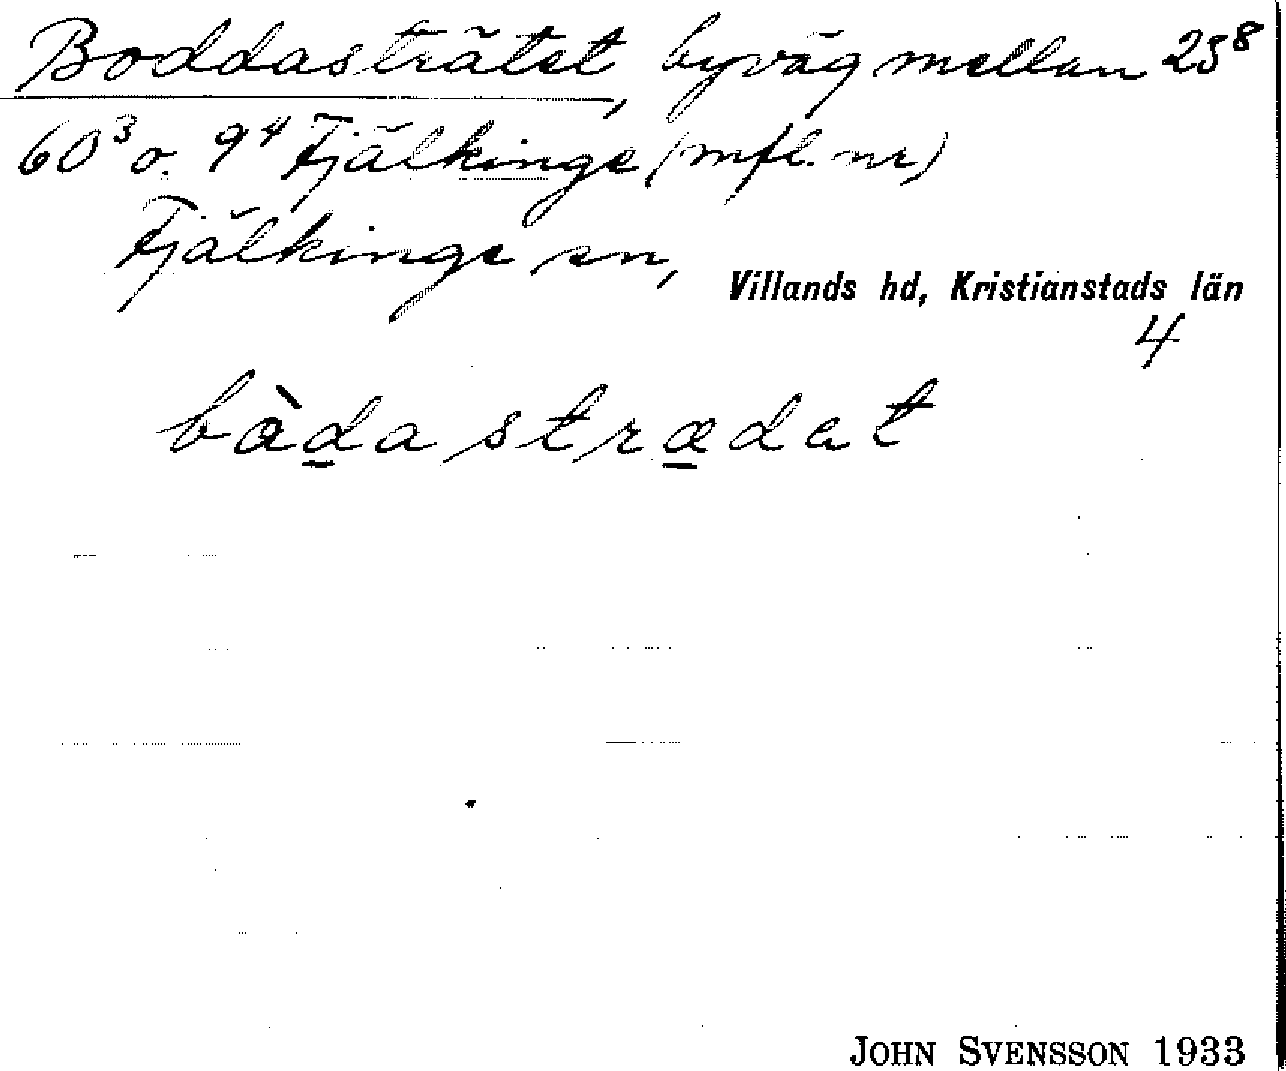 Boddasträtet, byväg mellan 25⁸
60³ o. 9⁴ Fjälkinge (mfl. nr)
Fjälkinge sn,
Villands hd, Kristianstads län
4
bòda̲stræ̲dat
JOHN SVENSSON 1933